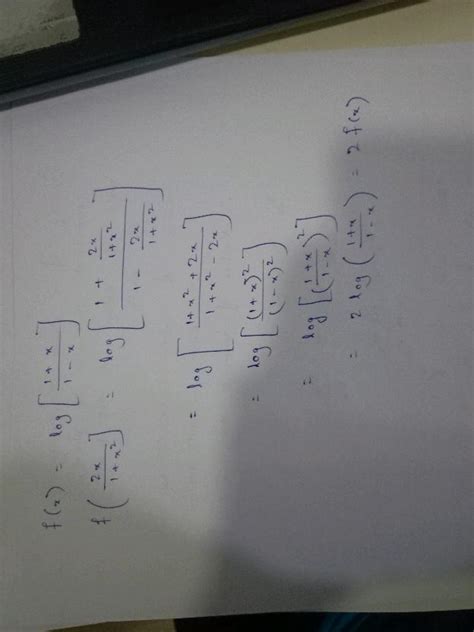 f(x) = log [ (1+x)/(1-x) ]
f ( 2x/(1+x²) ] = log [ (1 + 2x/(1+x²)) / (1 - 2x/(1+x²)) ]
= log [ (1+x² + 2x)/(1+x² - 2x) ]
= log [ (1+x)²/(1-x)² ]
= log [ ((1+x)/(1-x))² ]
= 2 log ( (1+x)/(1-x) ) = 2 f(x)